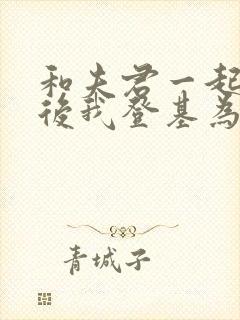 和夫君一起
後我登基為
青城子